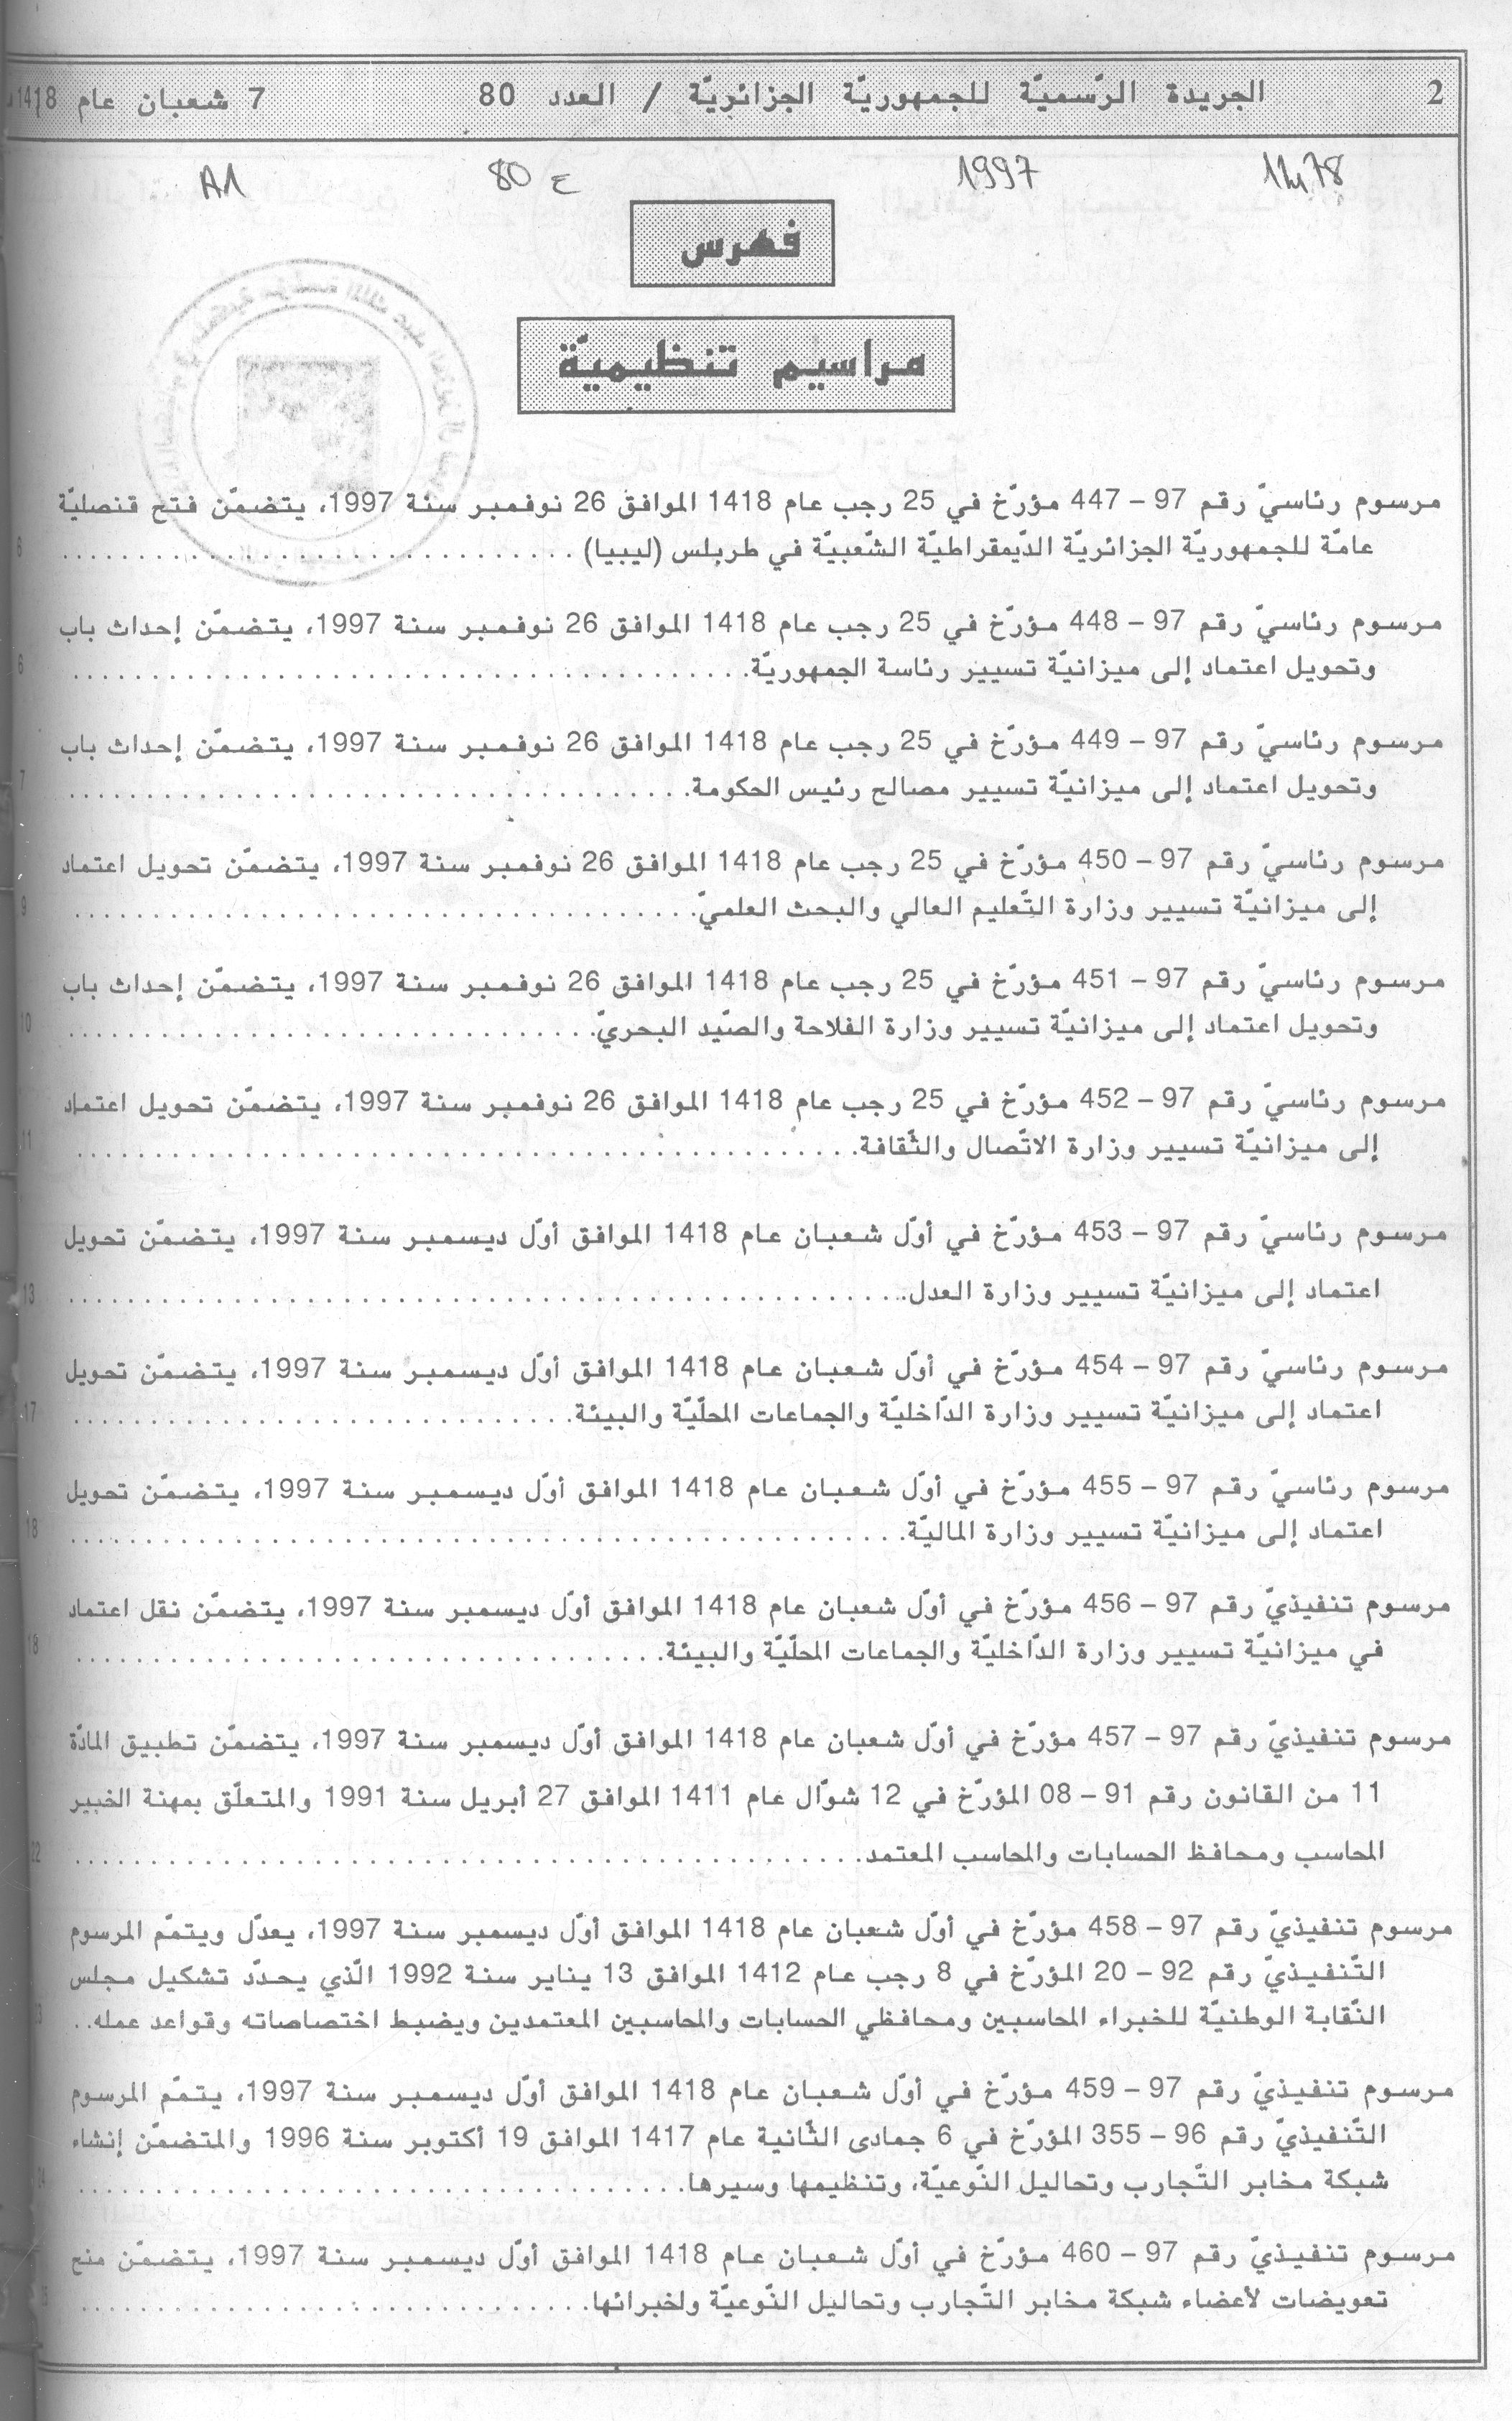 2 الجريدة الرّسميّة للجمهوريّة الجزائريّة / العدد 80 7 شعبان عام 1418
1997 ع 80 A1
فهرس
مراسيم تنظيميّة
مرسوم رئاسيّ رقم 97 – 447 مؤرّخ في 25 رجب عام 1418 الموافق 26 نوفمبر سنة 1997، يتضمّن فتح قنصليّة
عامّة للجمهوريّة الجزائريّة الدّيمقراطيّة الشّعبيّة في طربلس (ليبيا) . . . . . . . . . . 6
مرسوم رئاسيّ رقم 97 – 448 مؤرّخ في 25 رجب عام 1418 الموافق 26 نوفمبر سنة 1997، يتضمّن إحداث باب
وتحويل اعتماد إلى ميزانيّة تسيير رئاسة الجمهوريّة. . . . . . . . . . 6
مرسوم رئاسيّ رقم 97 – 449 مؤرّخ في 25 رجب عام 1418 الموافق 26 نوفمبر سنة 1997، يتضمّن إحداث باب
وتحويل اعتماد إلى ميزانيّة تسيير مصالح رئيس الحكومة. . . . . . . . . . 7
مرسوم رئاسيّ رقم 97 – 450 مؤرّخ في 25 رجب عام 1418 الموافق 26 نوفمبر سنة 1997، يتضمّن تحويل اعتماد
إلى ميزانيّة تسيير وزارة التّعليم العالي والبحث العلميّ. . . . . . . . . . 9
مرسوم رئاسيّ رقم 97 – 451 مؤرّخ في 25 رجب عام 1418 الموافق 26 نوفمبر سنة 1997، يتضمّن إحداث باب
وتحويل اعتماد إلى ميزانيّة تسيير وزارة الفلاحة والصّيد البحريّ. . . . . . . . . . 10
مرسوم رئاسيّ رقم 97 – 452 مؤرّخ في 25 رجب عام 1418 الموافق 26 نوفمبر سنة 1997، يتضمّن تحويل اعتماد
إلى ميزانيّة تسيير وزارة الاتّصال والثّقافة. . . . . . . . . . 11
مرسوم رئاسيّ رقم 97 – 453 مؤرّخ في أوّل شعبان عام 1418 الموافق أوّل ديسمبر سنة 1997، يتضمّن تحويل
اعتماد إلى ميزانيّة تسيير وزارة العدل. . . . . . . . . . 13
مرسوم رئاسيّ رقم 97 – 454 مؤرّخ في أوّل شعبان عام 1418 الموافق أوّل ديسمبر سنة 1997، يتضمّن تحويل
اعتماد إلى ميزانيّة تسيير وزارة الدّاخليّة والجماعات المحلّيّة والبيئة. . . . . . . . . . 17
مرسوم رئاسيّ رقم 97 – 455 مؤرّخ في أوّل شعبان عام 1418 الموافق أوّل ديسمبر سنة 1997، يتضمّن تحويل
اعتماد إلى ميزانيّة تسيير وزارة الماليّة. . . . . . . . . . 18
مرسوم تنفيذيّ رقم 97 – 456 مؤرّخ في أوّل شعبان عام 1418 الموافق أوّل ديسمبر سنة 1997، يتضمّن نقل اعتماد
في ميزانيّة تسيير وزارة الدّاخليّة والجماعات المحلّيّة والبيئة. . . . . . . . . . 18
مرسوم تنفيذيّ رقم 97 – 457 مؤرّخ في أوّل شعبان عام 1418 الموافق أوّل ديسمبر سنة 1997، يتضمّن تطبيق المادّة
11 من القانون رقم 91 – 08 المؤرّخ في 12 شوّال عام 1411 الموافق 27 أبريل سنة 1991 والمتعلّق بمهنة الخبير
المحاسب ومحافظ الحسابات والمحاسب المعتمد. . . . . . . . . . 22
مرسوم تنفيذيّ رقم 97 – 458 مؤرّخ في أوّل شعبان عام 1418 الموافق أوّل ديسمبر سنة 1997، يعدّل ويتمّم المرسوم
التّنفيذيّ رقم 92 – 20 المؤرّخ في 8 رجب عام 1412 الموافق 13 يناير سنة 1992 الّذي يحدّد تشكيل مجلس
النّقابة الوطنيّة للخبراء المحاسبين ومحافظي الحسابات والمحاسبين المعتمدين ويضبط اختصاصاته وقواعد عمله. .
مرسوم تنفيذيّ رقم 97 – 459 مؤرّخ في أوّل شعبان عام 1418 الموافق أوّل ديسمبر سنة 1997، يتمّم المرسوم
التّنفيذيّ رقم 96 – 355 المؤرّخ في 6 جمادى الثّانية عام 1417 الموافق 19 أكتوبر سنة 1996 والمتضمّن إنشاء
شبكة مخابر التّجارب وتحاليل النّوعيّة، وتنظيمها وسيرها. . . . . . . . . .
مرسوم تنفيذيّ رقم 97 – 460 مؤرّخ في أوّل شعبان عام 1418 الموافق أوّل ديسمبر سنة 1997، يتضمّن منح
تعويضات لأعضاء شبكة مخابر التّجارب وتحاليل النّوعيّة ولخبرائها. . . . . . . . . .